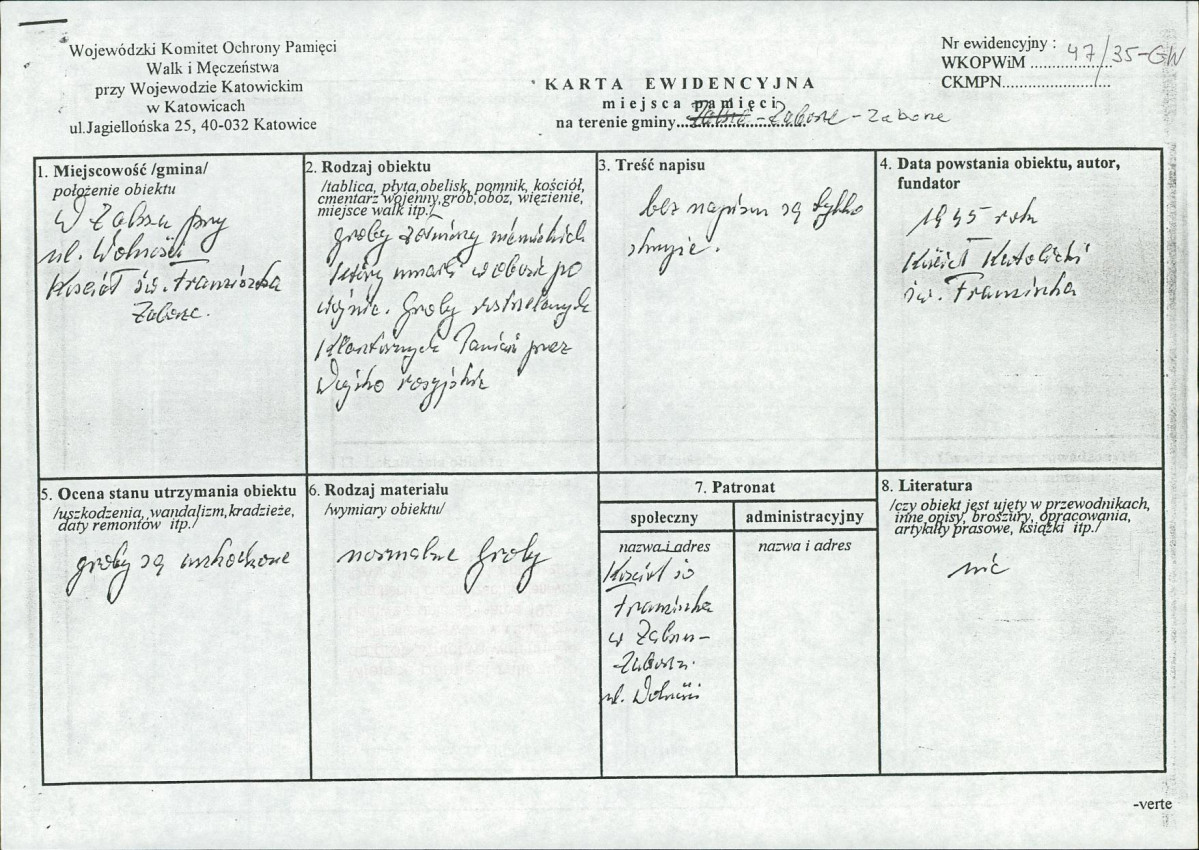 Wojewódzki Komitet Ochrony Pamięci
Walk i Męczeństwa
przy Wojewodzie Katowickim
w Katowicach
ul.Jagiellońska 25, 40-032 Katowice
KARTA EWIDENCYJNA
miejsca pamięci
na terenie gminy
Nr ewidencyjny :
WKOPWiM 47/35-GW
CKMPN
1. Miejscowość /gmina/
położenie obiektu
W Zabrzu przy
ul. Wolności
Kościół św. Franciszka
Zaborze.
2. Rodzaj obiektu
/tablica, płyta,obelisk, pomnik, kościół,
cmentarz wojenny,grób,obóz, więzienie,
miejsce walk itp./
groby żołnierzy niemieckich
którzy umarli w obozie po
wojnie. Groby rozstrzelanych
przez
Wojsko rosyjskie
3. Treść napisu
bez napisu są tylko
krzyże.
4. Data powstania obiektu, autor,
fundator
1945 roku
Kościół Katolicki
św. Franciszka
5. Ocena stanu utrzymania obiektu
/uszkodzenia, wandalizm,kradzieże,
daty remontów itp./
groby są
6. Rodzaj materiału
/wymiary obiektu/
normalne groby
7. Patronat
społeczny
nazwa i adres
Kościół św
Franciszka
w Zabrzu-
Zaborzu.
ul. Wolności
administracyjny
nazwa i adres
8. Literatura
/czy obiekt jest ujęty w przewodnikach,
inne opisy, broszury, opracowania,
artykuły prasowe, książki itp./
nic
-verte